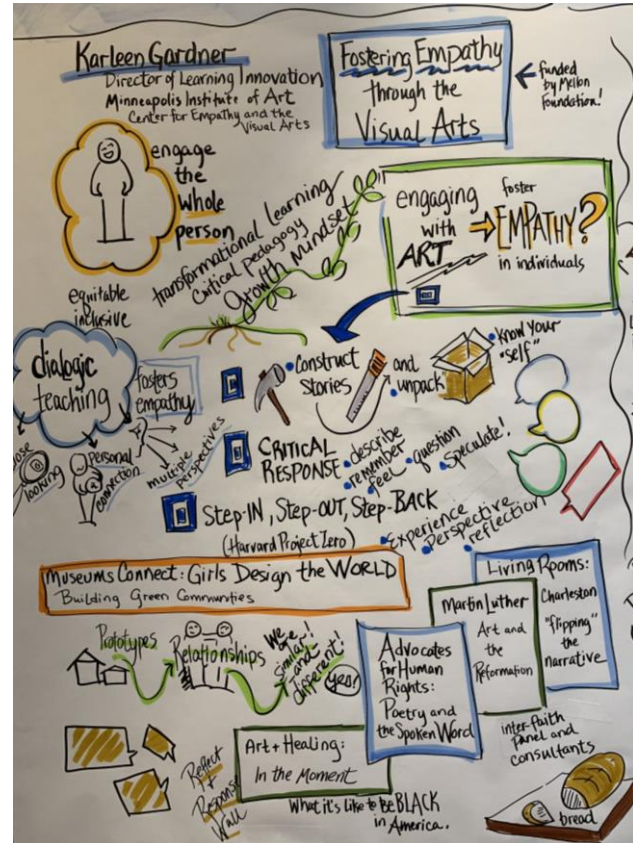 Karleen Gardner
Director of Learning Innovation
Minneapolis Institute of Art
Center for Empathy and the
Visual Arts
Fostering Empathy
through the
Visual Arts
funded
by Mellon
Foundation!
engage
the
whole
person
transformational Learning
Critical pedagogy
growth mindset
engaging
with
ART
foster
EMPATHY?
in individuals
equitable
inclusive
dialogic
teaching
fosters
empathy
looking
personal
connection
multiple
perspectives
Construct
Stories
and
unpack
know your
"self"
CRITICAL
RESPONSE
describe
remember
feel
question
Speculate!
Step-IN, Step-OUT, Step-BACK
(Harvard Project Zero)
Experience
Perspective
reflection
Museums Connect: Girls Design the WORLD
Building Green Communities
Prototypes
Relationships
We are
similar!
and
different!
yea!
Living Rooms:
Charleston
"flipping"
the
narrative
Martin Luther
Art and
the
Reformation
Advocates
for Human
Rights:
Poetry and
the Spoken Word
inter-faith
panel and
consultants
bread
Art + Healing:
In the Moment
Reflect
+
Response
Wall
What it's like to Be BLACK
in America.